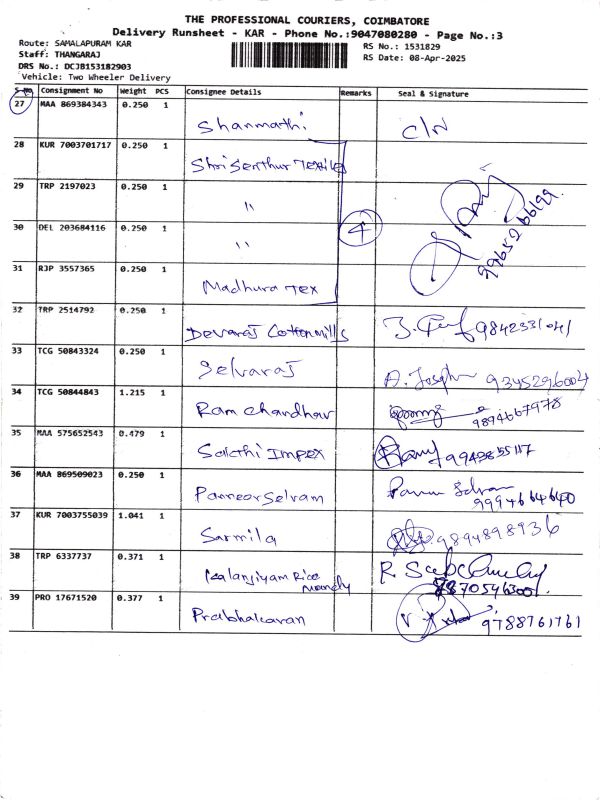 THE PROFESSIONAL COURIERS, COIMBATORE
Delivery Runsheet - KAR - Phone No.:9047080280 - Page No.:3
Route: SAMALAPURAM KAR
Staff: THANGARAJ
DRS No.: DCJB153182903
Vehicle: Two Wheeler Delivery
RS No.: 1531829
RS Date: 08-Apr-2025
S No Consignment No Weight PCS Consignee Details Remarks Seal & Signature
27 MAA 869384343 0.250 1 Shanmathi C/N
28 KUR 7003701717 0.250 1 Shri Senthur Textiles
29 TRP 2197023 0.250 1 "
30 DEL 203684116 0.250 1 " 4
31 RJP 3557365 0.250 1 Madhura Tex
32 TRP 2514792 0.250 1 Devaraj Cotton Mills
33 TCG 50843324 0.250 1 Selvaraj A. Joseph 9345296004
34 TCG 50844843 1.215 1 Ram Chandhar 9894667978
35 MAA 575652543 0.479 1 Sakthi Impex
36 MAA 869509023 0.250 1 Panneerselvam
37 KUR 7003755039 1.041 1 Sarmila 9894898936
38 TRP 6337737 0.371 1 Kalanjiyam Rice Mandy
39 PRO 17671520 0.377 1 Prabhakaran 9788761761